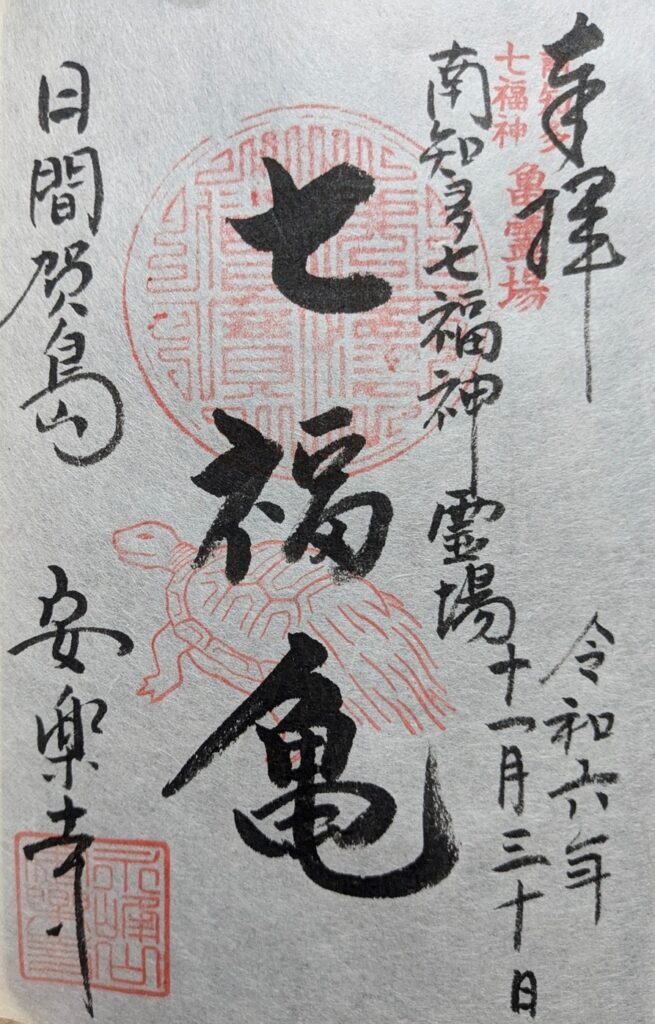 奉拝
令和六年
南知多
七福神
亀霊場
南知多七福神霊場
十一月三十日
七福亀
日間賀島 安楽寺